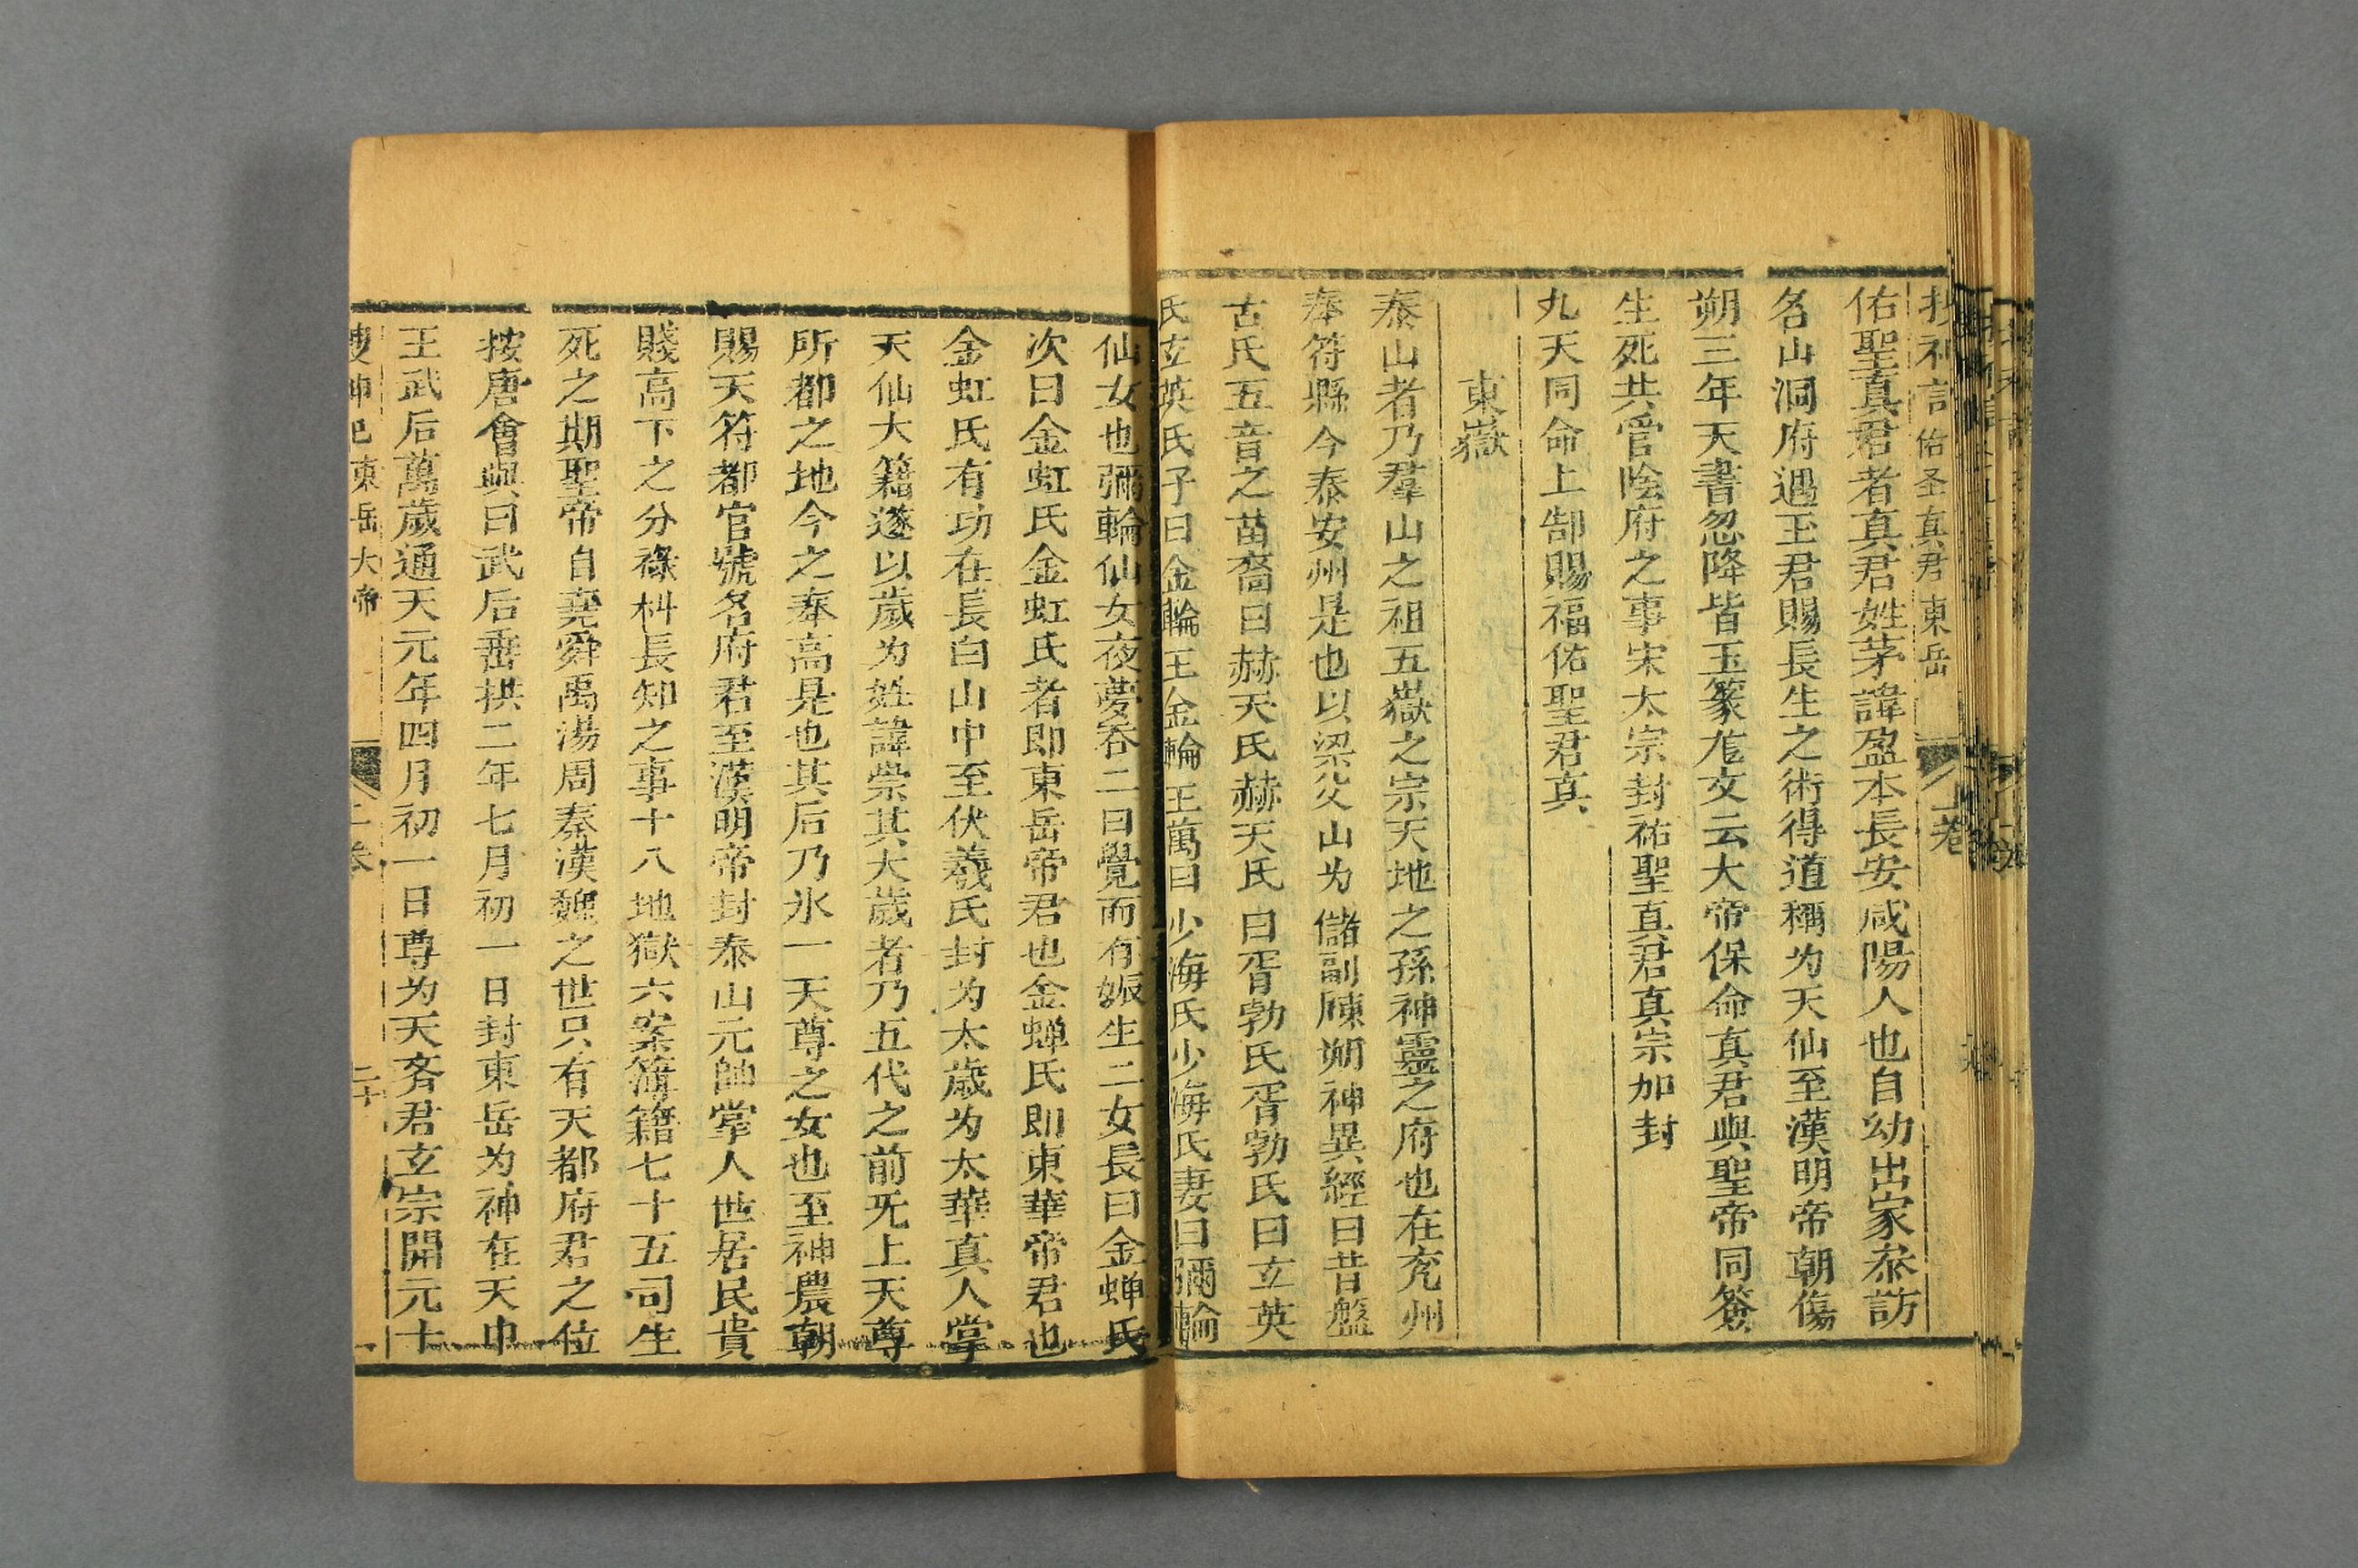 佑圣真君 東岳 上卷
佑聖真君者真君姓茅諱盈本長安咸陽人也自幼出家叅訪
名山洞府遇王君賜長生之術得道稱为天仙至漢明帝朝傷
朔三年天書忽降皆玉篆龙文云大帝保命真君與聖帝同簽
生死共管陰府之事宋太宗封祐聖真君真宗加封
九天同命上郜賜福佑聖君真
東嶽
泰山者乃羣山之祖五嶽之宗天地之孫神靈之府也在兖州
奉符縣今泰安州是也以梁父山为儲副陳朔神異經曰昔盤
古氏五音之苗裔曰赫天氏赫天氏曰胥勃氏胥勃氏曰玄英
氏玄英氏子曰金輪王金輪王萬曰少海氏少海氏妻曰彌輪
仙女也彌輪仙女夜夢吞二日覺而有娠生二女長曰金蟬氏
次曰金虹氏金虹氏者即東岳帝君也金蟬氏即東華帝君也
金虹氏有功在長白山中至伏羲氏封为太歲为太華真人掌
天仙大籍遂以歲为姓諱崇其大歲者乃五代之前旡上天尊
所都之地今之奉高是也其后乃氷一天尊之女也至神農朝
賜天符都官號名府君至漢明帝封泰山元帥掌人世居民貴
賤高下之分祿科長知之事十八地獄六案簿籍七十五司生
死之期聖帝自堯舜禹湯周秦漢魏之世只有天都府君之位
按唐會與曰武后垂拱二年七月初一日封東岳为神在天中
王武后萬歲通天元年四月初一日尊为天齐君玄宗開元十
搜神記 東岳大帝 上卷 二十